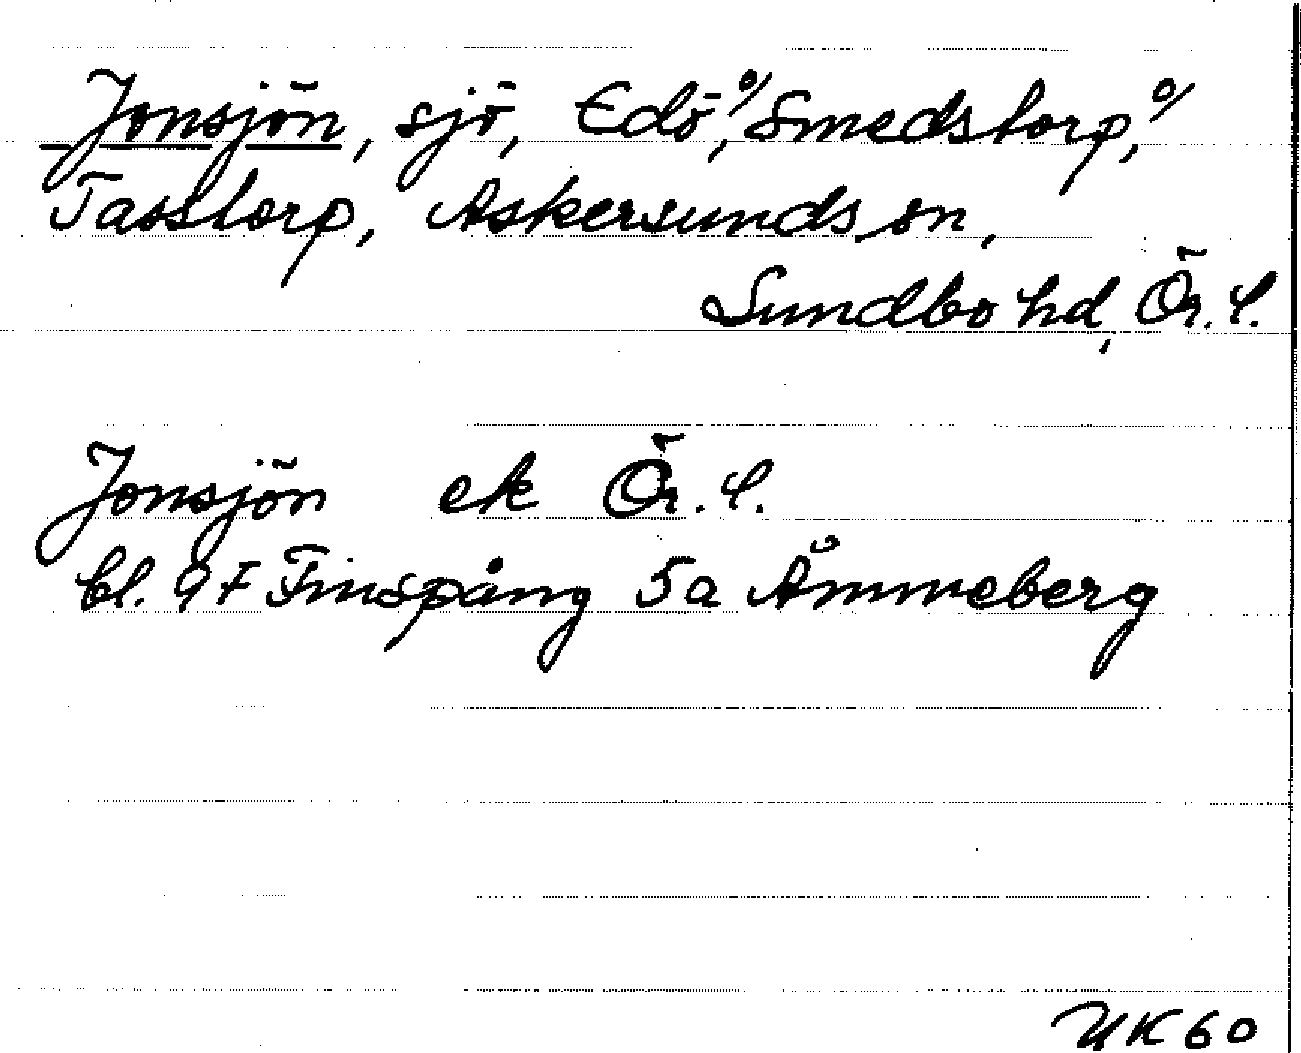 Jonsjön, sjö, Edö, o/ Smedstorp, o/
Tasstorp, Askersunds sn,
Sundbo hd, Ör. l.
Jonsjön ek Ör. l.
bl. 9F Finspång 5a Åmmeberg
UK60